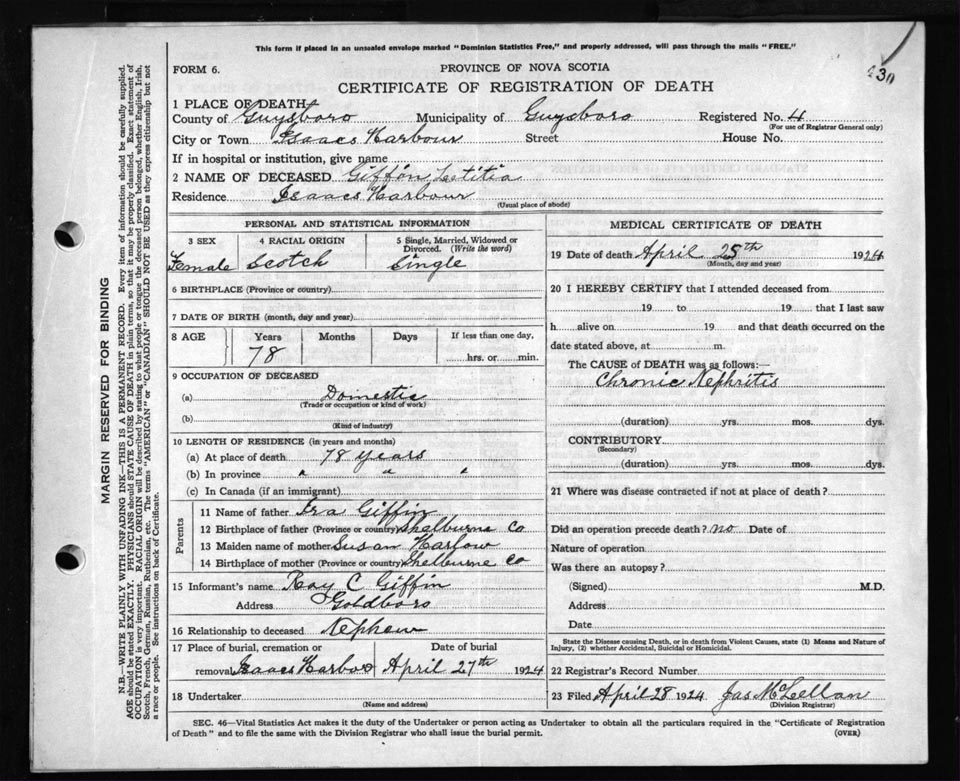 This form if placed in an unsealed envelope marked "Dominion Statistics Free," and properly addressed, will pass through the mails "FREE."
FORM 6.
PROVINCE OF NOVA SCOTIA
CERTIFICATE OF REGISTRATION OF DEATH
1 PLACE OF DEATH
County of Guysboro Municipality of Guysboro Registered No. 4
(For use of Registrar General only)
City or Town Isaacs Harbour Street House No.
If in hospital or institution, give name
2 NAME OF DECEASED Giffin Letitia
Residence Isaacs Harbour
(Usual place of abode)
PERSONAL AND STATISTICAL INFORMATION
3 SEX 4 RACIAL ORIGIN 5 Single, Married, Widowed or Divorced. (Write the word)
Female Scotch Single
6 BIRTHPLACE (Province or country)
7 DATE OF BIRTH (month, day and year)
8 AGE Years Months Days If less than one day,
78 hrs. or min.
9 OCCUPATION OF DECEASED
(a) Domestic
(Trade or occupation or kind of work)
(b)
(Kind of industry)
10 LENGTH OF RESIDENCE (in years and months)
(a) At place of death 78 years
(b) In province " " "
(c) In Canada (if an immigrant)
Parents
11 Name of father Ira Giffin
12 Birthplace of father (Province or country) Shelburne Co
13 Maiden name of mother Susan Harlow
14 Birthplace of mother (Province or country) Shelburne Co
15 Informant's name Ray C Giffin
Address Goldboro
16 Relationship to deceased Nephew
17 Place of burial, cremation or Date of burial
removal Isaacs Harbor April 27th 1924
18 Undertaker
(Name and address)
MEDICAL CERTIFICATE OF DEATH
19 Date of death April 25th 1924
(Month, day and year)
20 I HEREBY CERTIFY that I attended deceased from
19 to 19 that I last saw
h alive on 19 and that death occurred on the
date stated above, at m.
The CAUSE of DEATH was as follows:—
Chronic Nephritis
(duration) yrs. mos. dys.
CONTRIBUTORY
(Secondary)
(duration) yrs. mos. dys.
21 Where was disease contracted if not at place of death?
Did an operation precede death? no Date of
Nature of operation
Was there an autopsy?
(Signed) M.D.
Address
Date
State the Disease causing Death, or in death from Violent Causes, state (1) Means and Nature of
Injury, (2) whether Accidental, Suicidal or Homicidal.
22 Registrar's Record Number
23 Filed April 28 1924 Jas McLellan
(Division Registrar)
SEC. 46—Vital Statistics Act makes it the duty of the Undertaker or person acting as Undertaker to obtain all the particulars required in the "Certificate of Registration
of Death" and to file the same with the Division Registrar who shall issue the burial permit. (OVER)
MARGIN RESERVED FOR BINDING
N.B.—WRITE PLAINLY WITH UNFADING INK—THIS IS A PERMANENT RECORD. Every item of information should be carefully supplied.
AGE should be stated EXACTLY. PHYSICIANS should STATE CAUSE OF DEATH in plain terms, so that it may be properly classified. Exact statement of
OCCUPATION is very important. RACIAL ORIGIN will be described by stating to what people or tongue the deceased person belonged, whether English, Irish,
Scotch, French, German, Russian, Ruthenian, etc. The terms "AMERICAN" or "CANADIAN" SHOULD NOT BE USED as they express citizenship but not
a race or people. See instructions on back of Certificate.